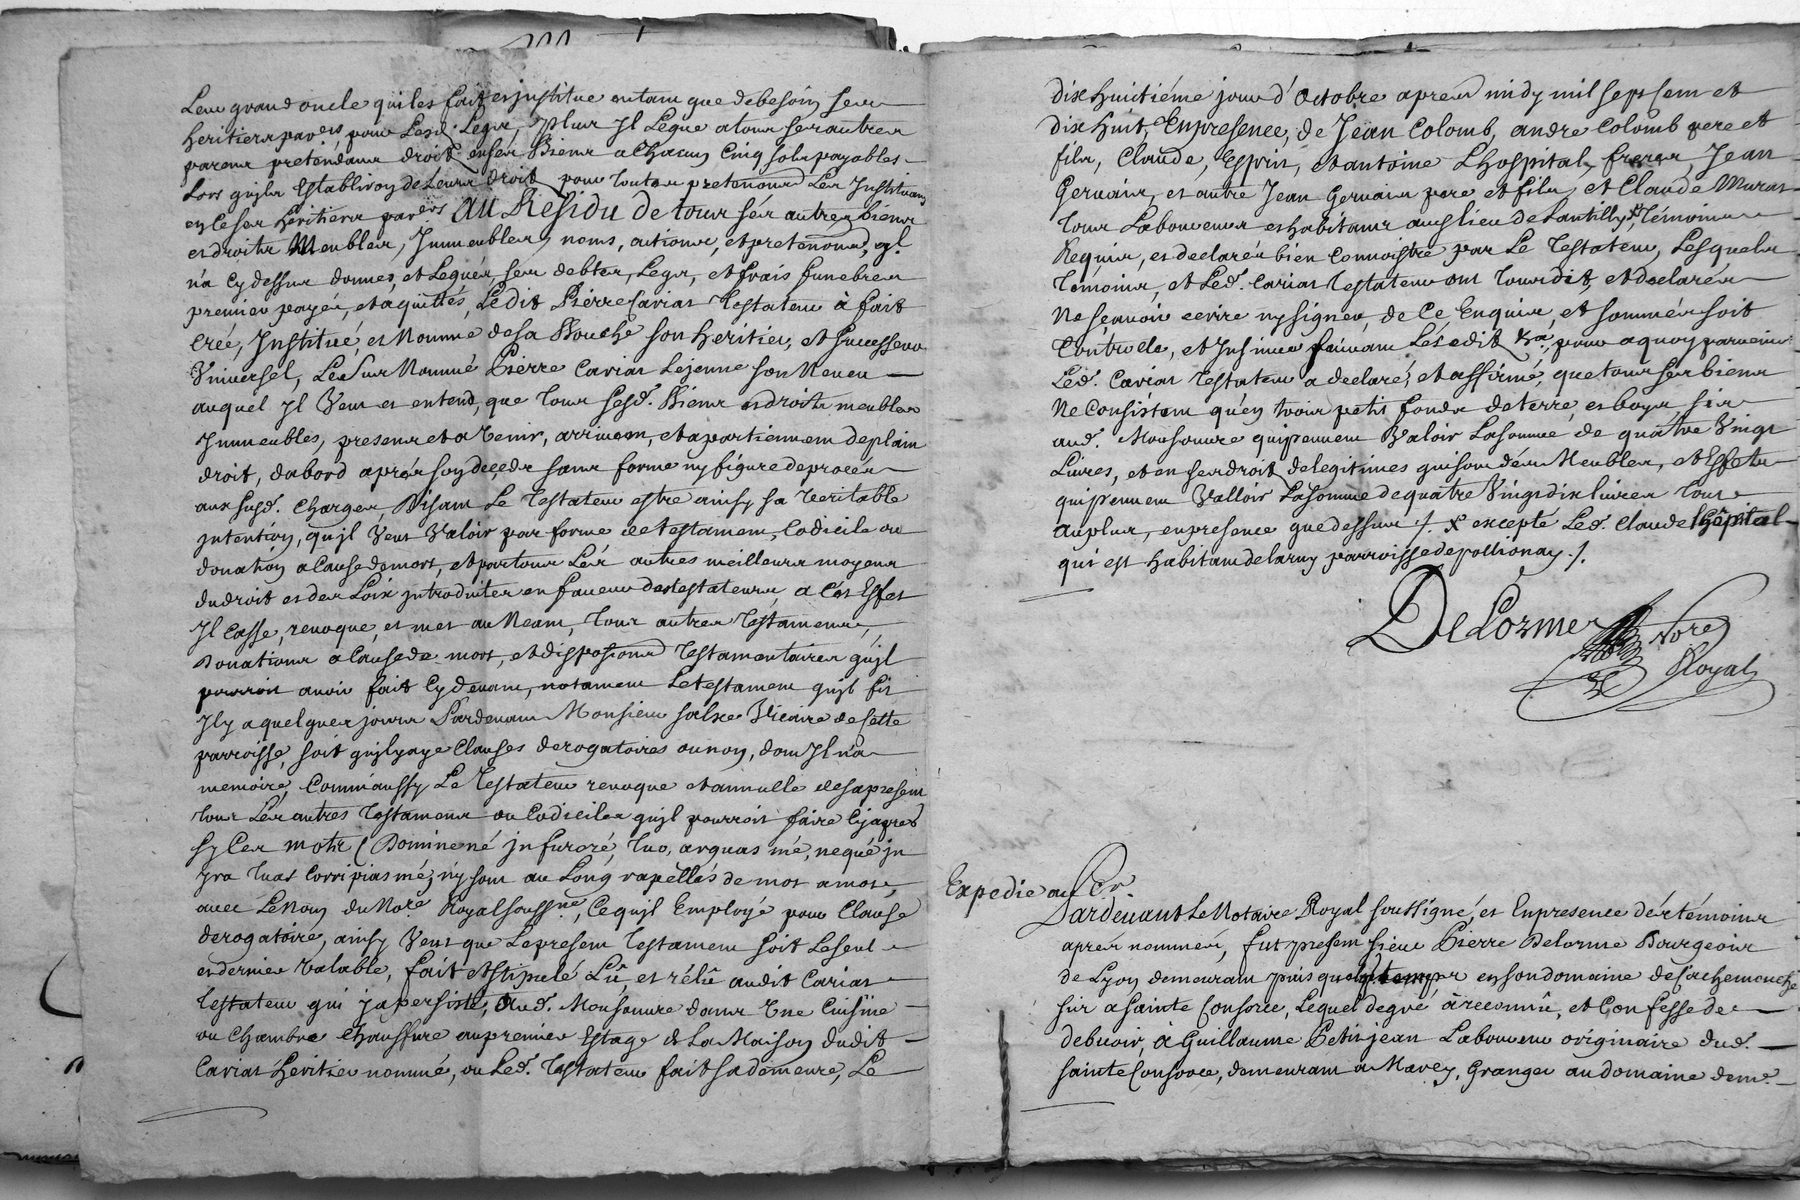 Leur grand oncle quiles fait et jnstitue entant que debesoin seur
heritiers parers, pour Lesd. Legs, plus Jl Legue atous ses autres
parens pretendans droit en ses Biens achacun Cinq sols payables
Lors qujls Establiron de Leurs droit, pour toutes pretentions Les Justituans
en Ce ses heritiers parers. AU Residu de tous sés autres biens
et droits Meubles, Jmmeubles, noms, actions, et pretentions, qjl
n'a Cy dessus donnés, et Legués, ses debtes, Legs, et frais funebres
premier payés, et aquittés, Ledit Pierre Cariat Testateur à fait
Créé, Jnstitué, et Nommé de sa Bouche son heritier, et successeur
Vniversel, Led Sur Nommé Pierre Cariat Lejeune son Neveu
auquel Jl Veut et entend, que tous sesd. Biens et droits meubles
Jmmeubles, presens et a Venir, arrivent, et apartiennent deplain
droit, dabord aprés son decede sans forme ny figure de procés
aux susd. Charges, Disant Le Testateur estre ainsy sa Veritable
jntention, qujl Veut Valoir par forme de testament, Codicile ou
donation a Cause de mort, et partous Lés autres meilleurs moyens
du droit et des Loix jntroduites en faveur des testateurs, a Cet Effet
Jl Casse, revoque, et met au Neant, tous autres Testaments,
Donations a Cause de mort, et dispositions Testamentaires qujl
pourroit avoir fait Cydevant, notament Le testament qujl fit
Jl y a quelques jours Pardevant Monsieur salxe Vicaire de Cette
parroisse, soit qujl y aye Clauses derogatoires ou non, dont Jl n'a
memoire, Comm'aussy Le Testateur revoque et annulle des apresent
tous Les autres Testamens ou Codiciles qujl pourroit faire Cyaprés
sy Ces mots (Domine né jn furoré, tuo, arguas mé, neque jn
jra tuas Corripias mé, n'y sont au Long rapellés de mot amot,
avec Le Nom du Nore. Royal soussne., Ce qujl Employé pour Clause
derogatoire, ainsy Veut que Le present Testament soit Le seul
et dernier Valable, fait et stipulé Lû, et rélû audit Cariat
Testateur qui j a persisté, Aud. Monsouvre dans Vne Cuisine
ou Chambre Chauffure au premier Estage de La Maison dudit
Cariat héritier nommé, ou Led. Testateur fait sa demeure, Le
dix huitiéme jour d'Octobre apres midy mil sept Cent et
dix huit, En presence, de Jean Colomb, andre Colomb pere et
fils, Claude, Esprit, et antoine Lhospital, freres, Jean
Gervais, et autre Jean Gervais pere et fils, et Claude Murat
tous Laboureurs et habitans aud lieu de Lantilly, x Témoins
Requis, et declarés bien Connoistre par Le Testateur, Lesquels
Témoins, et Led. Cariat Testateur ont tous dit, et declarés
Ne sçavoir ecrire ny signer, de Ce Enquis, et sommés soit
Controlé, et Jnsinué suivant Lés edit &ra., pour a quoy parvenir
Led. Cariat Testateur a declaré, et affirmé, que tous sés biens
Ne Consistent qu'en trois petis fonds de terre, et boys, sis
aud. Monsouvre qui peuvent Valoir La somme de quatre Vingt
Livres, et en ses droit de legitimes qui sont dés Meubles, et Effets
qui peuvent Valloir La somme de quatre Vingt dix livres tout
au plus, en presence que dessus /. x excepté Led. Claude lhôpital
qui est habitant de larny parroisse de pollionay /.
DeLorme Nore
Royal
Expedie au Cr.
Pardevant Le Notaire Royal soussigné, et En presence dés témoins
aprés nommés, fut present sieur Pierre Delorme Bourgeois
de Lyon demeurant puis quelq. temps en son domaine de Cachemouche
sis a Sainte Consorce, Lequel de gré à reconnû, et Confesse de
debvoir, à Guillaume Petitjean Laboureur originaire dud.
Sainte Consorce, demeurant a Marcy, Granger au domaine de mr.